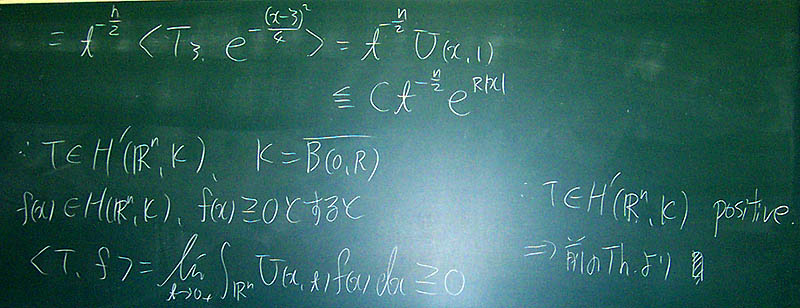 = t^{-n/2} <T_3, e^{-(x-3)^2/4}> = t^{-n/2} U(x,1)
≦ C t^{-n/2} e^{R|x|}
∴ T∈H'(ℝ^n, K), K = \overline{B(0,R)}
f(x)∈H(ℝ^n, K), f(x)≧0とすると
<T, f> = lim_{t→0+} ∫_{ℝ^n} U(x,t) f(x) dx ≧ 0
∴ T∈H'(ℝ^n, K) positive.
⇒ 前のTh.より